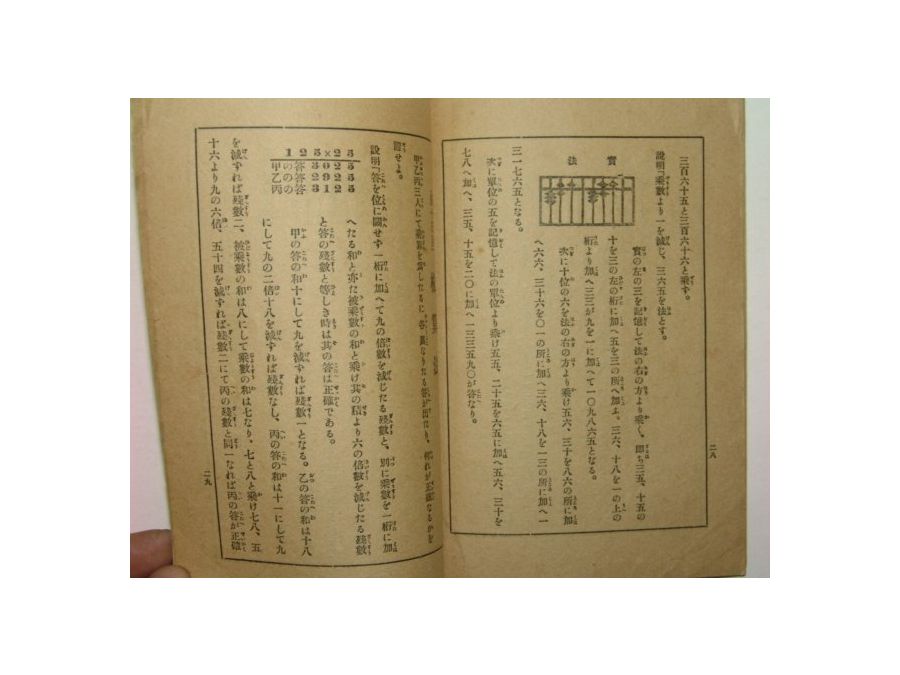 三百六十五と三百六十六と乗す。
説明「乗數より一を減じ、三六五を法とす。
實の左の三を記憶して法の右の方より乗く、卽ち三五、十五の
十を三の左の桁に加へ五を三の所へ加ふ。三六、十八を一の上の
桁より加へ三三が九を一に加へて一〇九八六五となる。
次に十位の六を法の右の方より乗け五六、三十を八六の所に加
へ六六、三十六を〇一の所に加へ三六、十八を一三の所に加へ一
實
法
三一七六五となる。
次に單位の五を記憶して法の單位より乗け五五、二十五を六五に加へ五六、三十を
七八へ加へ、三五、十五を二〇に加へ一三三五九〇が答なり。
二八
甲乙丙三人にて
りたる答が出たり、何れが正確なるかを
證せよ。
説明「答を位に關せず一桁に加へて九の倍數を減じたる殘數と、別に乗數を一桁に加
へたる和と亦た被乗數の和と乗け其の積より六の倍數を減じたる殘數
と答の殘數と等しき時は其の答は正確である。
甲の答の和十にして九を減ずれば殘數一となる。乙の答の和は十八
にして九の二倍十八を減ずれば殘數なし、丙の答の和は十一にして九
125×25
甲の答 3225
乙の答 3025
丙の答 3125
を減ずれば殘數二、被乗數の和は八にして乗數の和は七なり、七と八と乗け七八、五
十六より九の六倍、五十四を減ずれば殘數二にて丙の殘數と同一なれば丙の答が正確
二九